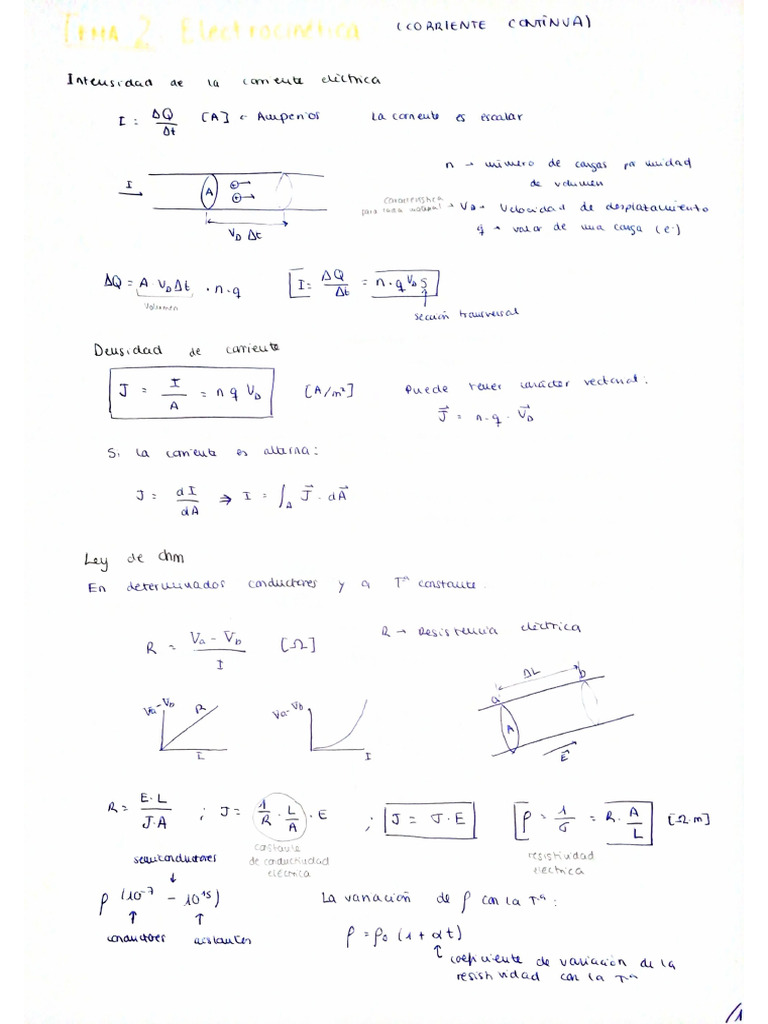 TEMA 2 Electrocinética (CORRIENTE CONTINUA)
Intensidad de la corriente eléctrica
I = ΔQ/Δt [A] → Amperios La corriente es escalar
n → número de cargas por unidad de volumen
I
A
V_D Δt
característica para cada material → V_D → Velocidad de desplazamiento
q → valor de una carga (e⁻)
ΔQ = A · V_D Δt · n · q
volumen
I = ΔQ/Δt = n · q V_D S
sección transversal
Densidad de corriente
J = I/A = n q V_D [A/m²]
Puede tener carácter vectorial:
J⃗ = n · q · V⃗_D
Si la corriente es alterna:
J = dI/dA ⇒ I = ∫_A J⃗ · dA⃗
Ley de Ohm
En determinados conductores y a Tª constante.
R = Va - Vb / I [Ω]
R → Resistencia eléctrica
Va-Vb R I
Va-Vb I
a ΔL b A E⃗
R = E·L / J·A ; J = 1/R · L/A · E ; J = σ · E
ρ = 1/σ = R · A/L [Ω·m]
constante de conductividad eléctrica
resistividad eléctrica
semiconductores
ρ (10⁻⁷ - 10¹⁵)
conductores aislantes
La variación de ρ con la Tª:
ρ = ρ₀ (1 + αt)
coeficiente de variación de la resistividad con la Tª
/1